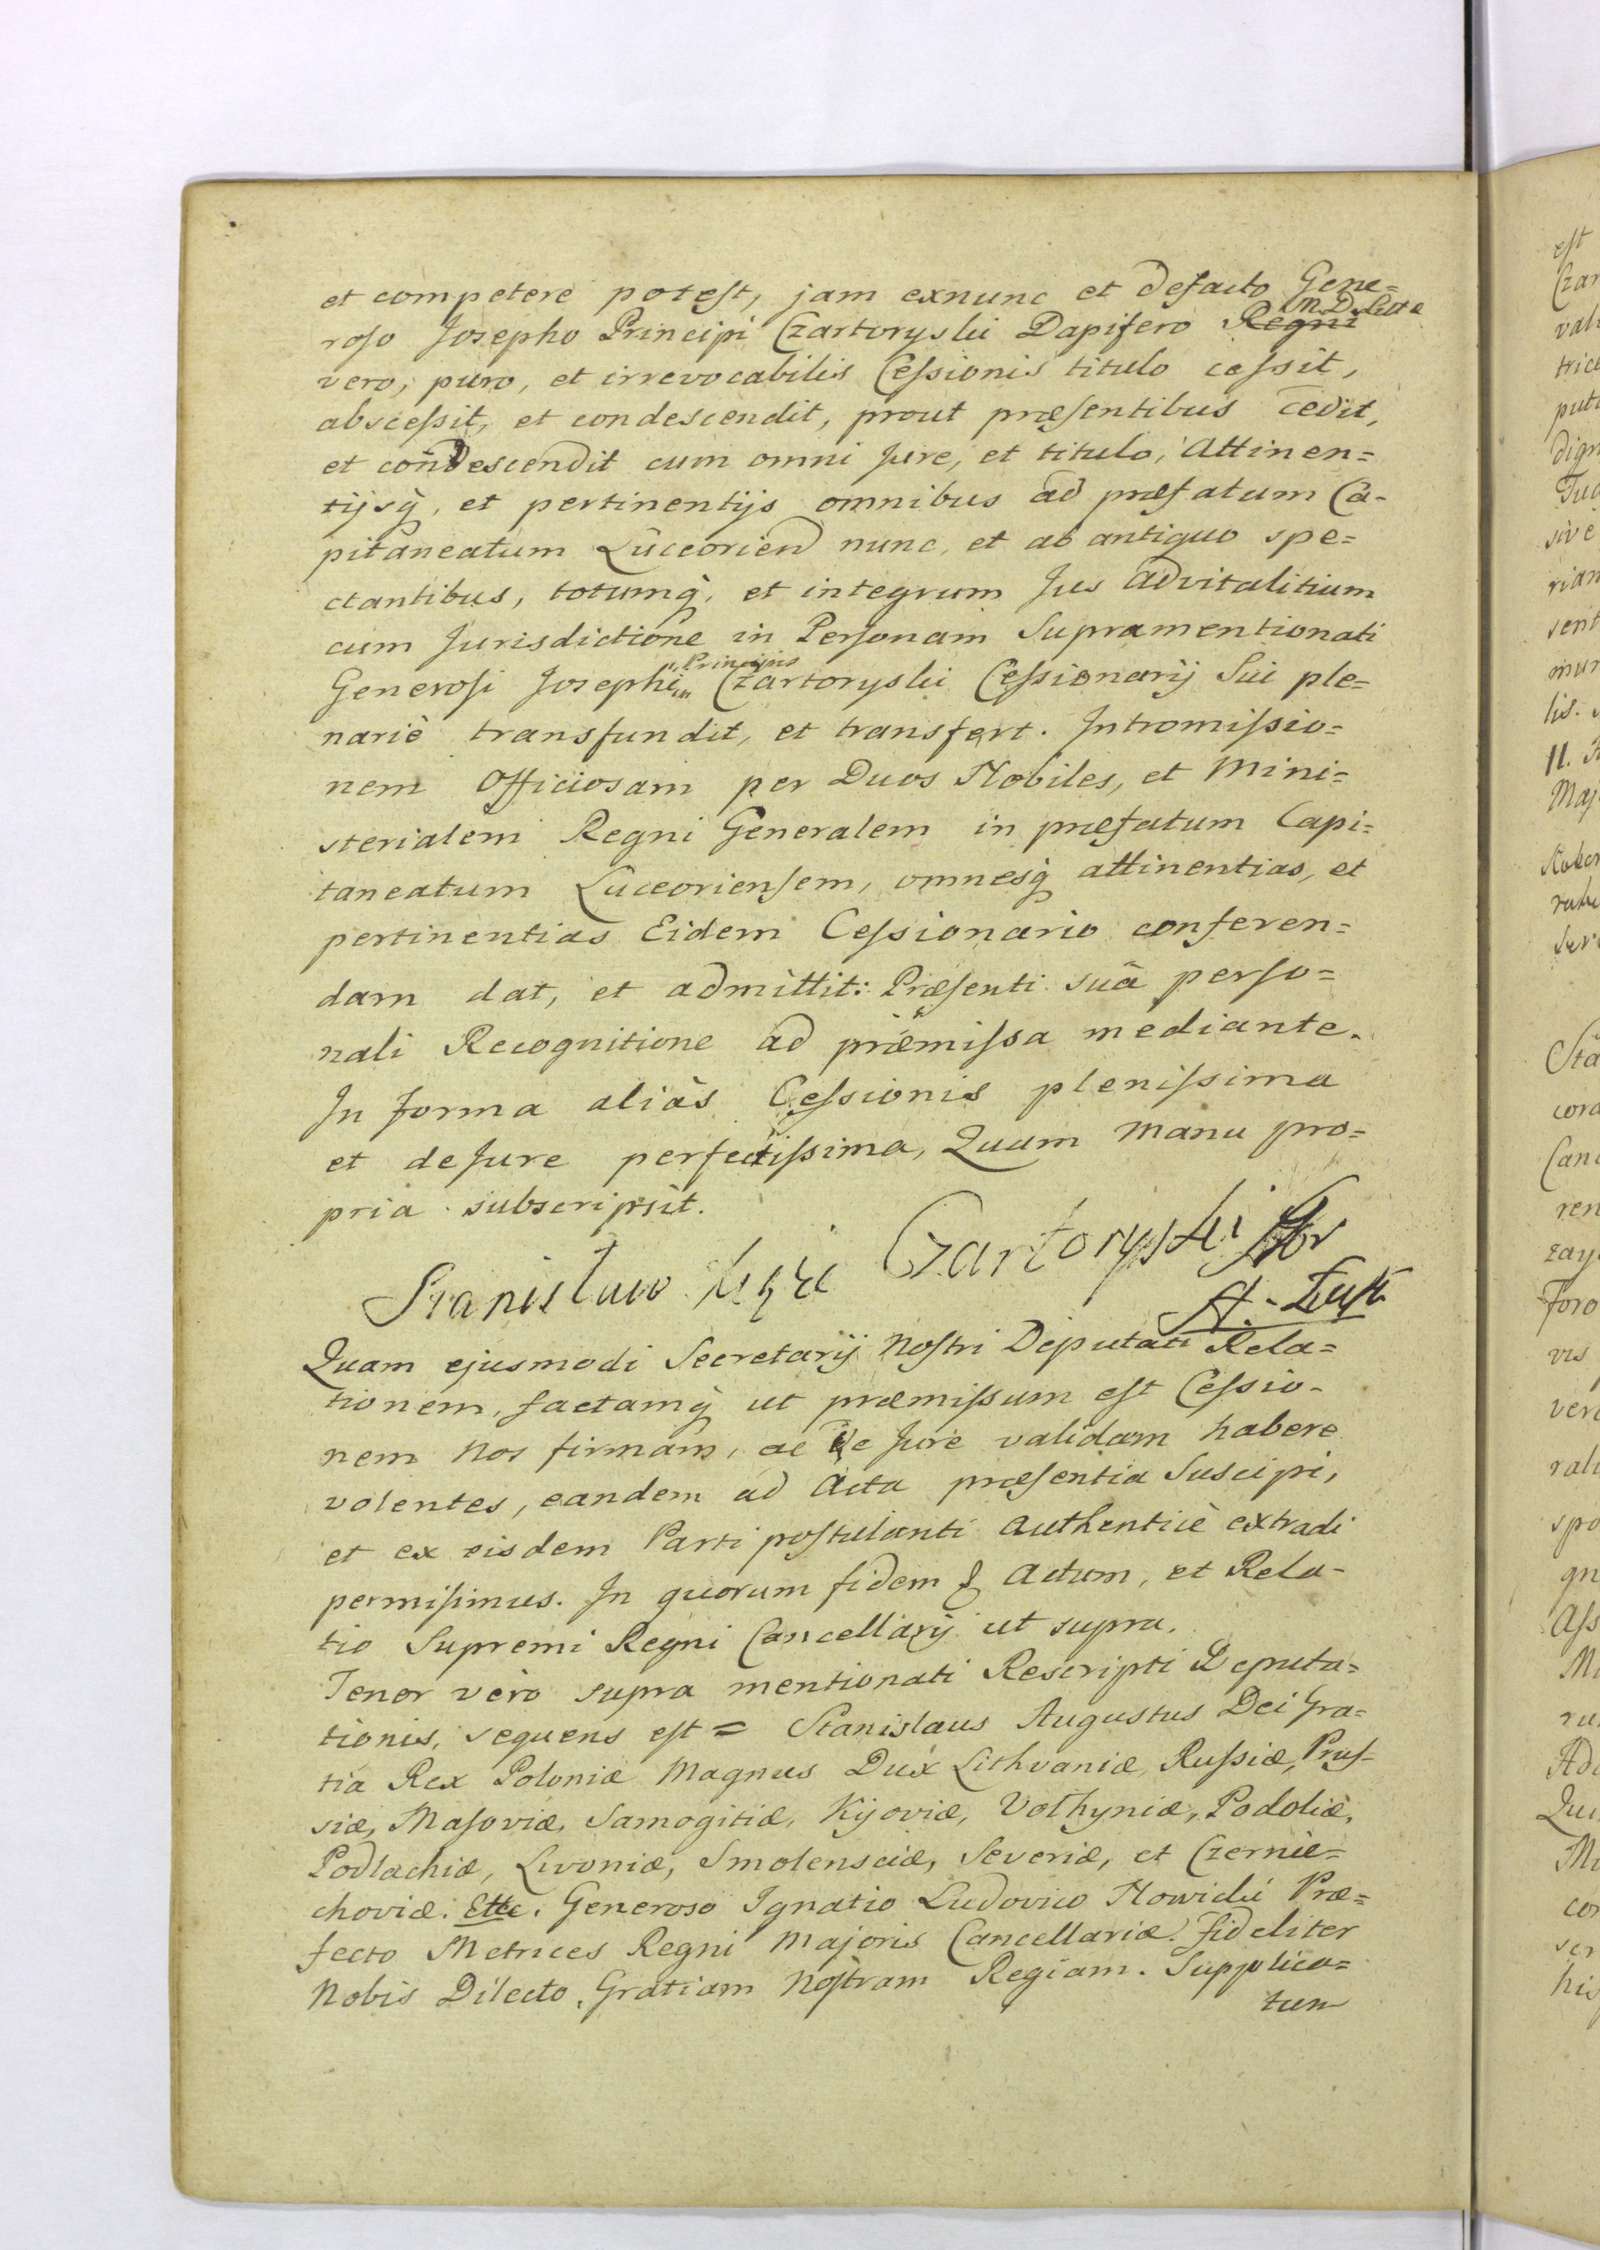 et competere potest, jam exnunc et defacto Gene=
roso Josepho Principi Czartoryski Dapifero Regni M. D. Litt
vero, puro, et irrevocabilis Cessionis titulo cessit,
abscessit, et condescendit, prout præsentibus cedit,
et condescendit cum omni Jure, et titulo, Attinen=
tijsq̀, et pertinentijs omnibus ad præfatum Ca-
pitaneatum Luceorien nunc, et ab antiquo spe=
ctantibus, totumq̀, et integrum Jus Advitalitium
cum Jurisdictione in Personam Supramentionati
Generosi Josephi Principis Czartoryski Cessionarij Sui ple=
nariè transfundit, et transfert. Intromissio=
nem Officiosam per Duos Nobiles, et Mini=
sterialem Regni Generalem in præfatum Capi=
taneatum Luceoriensem, omnesq̀ attinentias, et
pertinentias Eidem Cessionario conferen=
dam dat, et admittit: Præsenti suâ perso=
nali Recognitione ad præmissa mediante.
In forma aliàs Cessionis plenissima
et deJure perfectissima, Quam manu pro=
pria subscripsit.
Stanislaw Xże Czartoryski
Quam ejusmodi Secretarij Nostri Deputati Rela=
tionem, factamq̀ ut præmissum est Cessio-
nem Nos firmam, ac de Jure validam habere
volentes, eandem ad Acta præsentia Suscipi,
et ex eisdem Parti postulanti Authenticè extradi
permisimus. In quorum fidem & Actum, et Rela-
tio Supremi Regni Cancellarij ut supra.
Tenor verò supra mentionati Rescripti Deputa=
tionis, sequens est = Stanislaus Augustus Dei Gra=
tia Rex Poloniæ Magnus Dux Lithvaniæ, Russiæ, Prus-
siæ, Masoviæ, Samogitiæ, Kijoviæ, Volhyniæ, Podoliæ,
Podlachiæ, Livoniæ, Smolensciæ, Severiæ, et Czernie=
choviæ. Ettc. Generoso Ignatio Ludovico Nowicki Præ=
fecto Metrices Regni Majoris Cancellariæ fideliter
Nobis Dilecto, Gratiam Nostram Regiam. Supplica=
tum